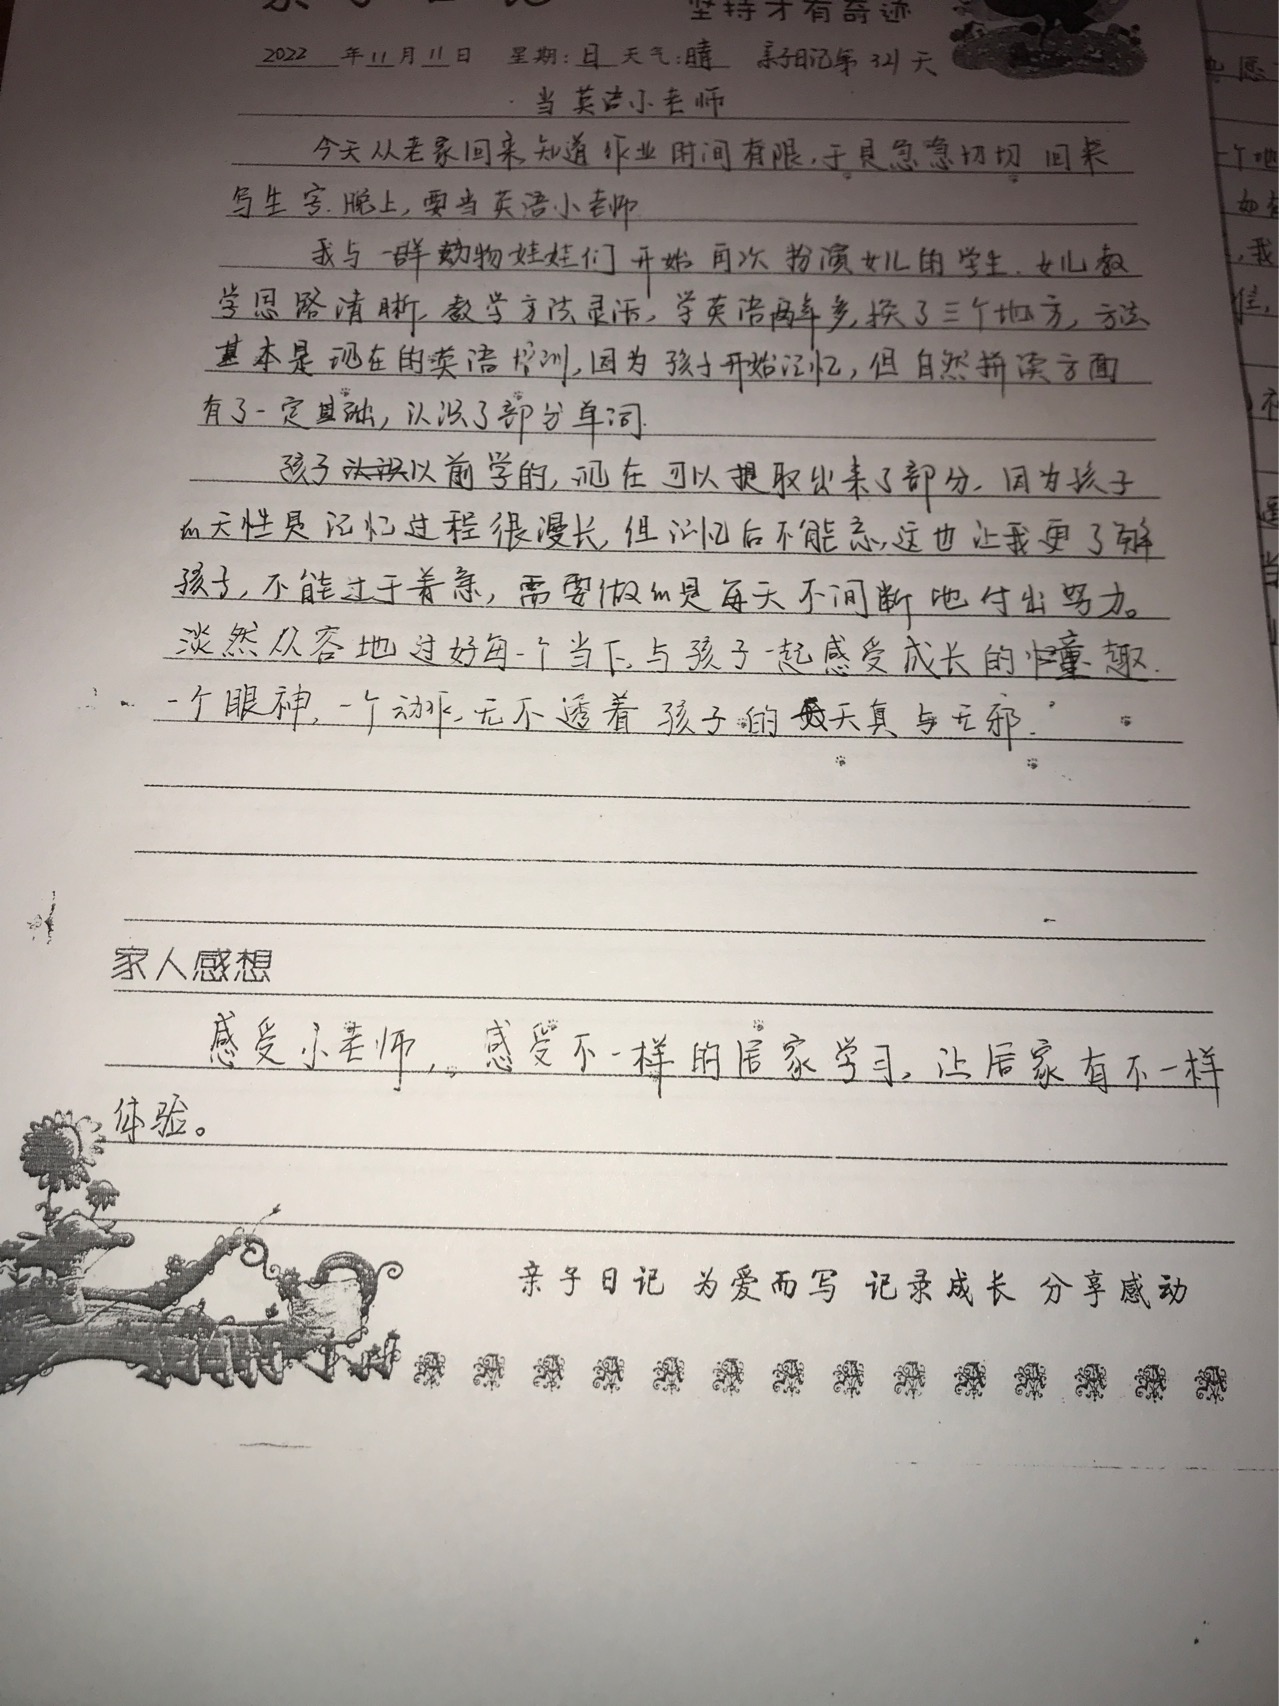 亲子日记
坚持才有奇迹
2022 年11月11日 星期:日 天气:晴 亲子日记第321天
当英语小老师
今天从老家回来知道作业时间有限,于是急急切切回来
写生字.晚上,要当英语小老师
我与一群动物娃娃们开始再次扮演女儿的学生.女儿教
学思路清晰,教学方法灵活,学英语两年多,换了三个地方,方法
基本是现在的英语培训,因为孩子开始记忆,但自然拼读方面
有了一定基础,认识了部分单词.
孩子以前学的,现在可以提取出来了部分.因为孩子
的天性是记忆过程很漫长,但记忆后不能忘,这也让我更了解
孩子,不能过于着急,需要做的是每天不间断地付出努力。
淡然从容地过好每一个当下,与孩子一起感受成长的童趣.
一个眼神,一个动作,无不透着孩子的天真与无邪.
家人感想
感受小老师,感受不一样的居家学习,让居家有不一样
体验。
亲子日记 为爱而写 记录成长 分享感动